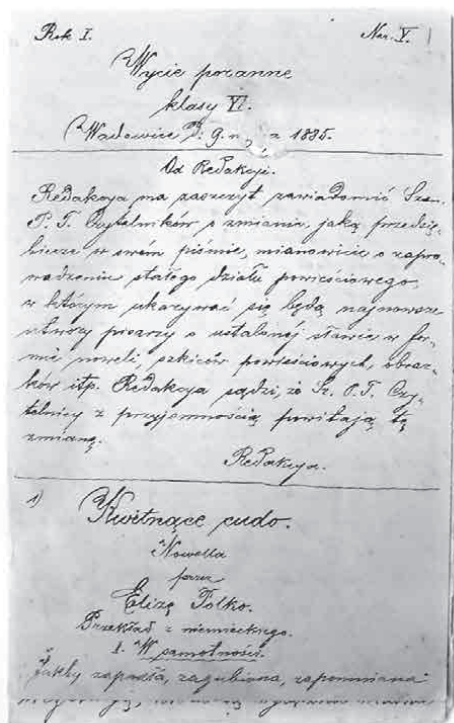 Rok I. Nar. V.
Wycie poranne
klasy VI.
Wadowice D. 9. 1885.
Od Redakcji.
Redakcya ma zaszczyt zawiadomić Szan.
P. T. Czytelników o zmianie, jaką przedsię-
bierze w swém piśmie, mianowicie o zapro-
wadzeniu stałego działu powieściowego,
w którym ukazywać się będą najnowsze
utwory pisarzy o ustalonéj sławie w for-
mie noweli szkiców powieściowych, obraz-
ków itp. Redakcya sądzi, że Sz. P. T. Czy-
telnicy z przyjemnością powitają tę
zmianę.
Redakcya.
1) Kwitnące cudo.
Nowella
przez
Elizę Polko.
Przekład z niemieckiego.
I. W samotności.
Jakby zapadła, zagubiona, zapomniana